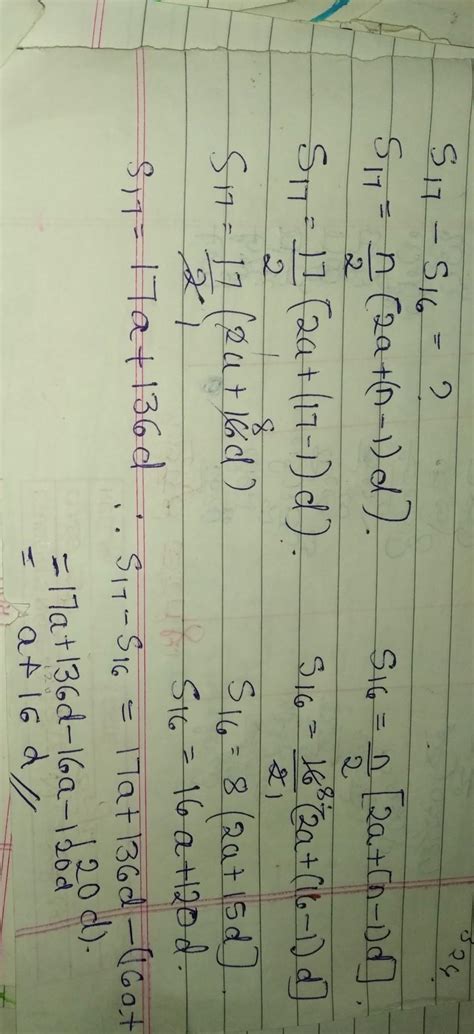 S₁₇ - S₁₆ = ?
S₁₇ = n/2 (2a+(n-1)d).
S₁₇ = 17/2 (2a+(17-1)d).
S₁₇ = 17/2 1 (2a+16d) 8
S₁₇ = 17a+136d
S₁₆ = n/2 [2a+(n-1)d].
S₁₆ = 16/2 8 1 (2a+(16-1)d]
S₁₆ = 8 (2a+15d].
S₁₆ = 16a+120d.
∴ S₁₇-S₁₆ = 17a+136d-(16a+120d).
=17a+136d-16a-120d
= a+16d//